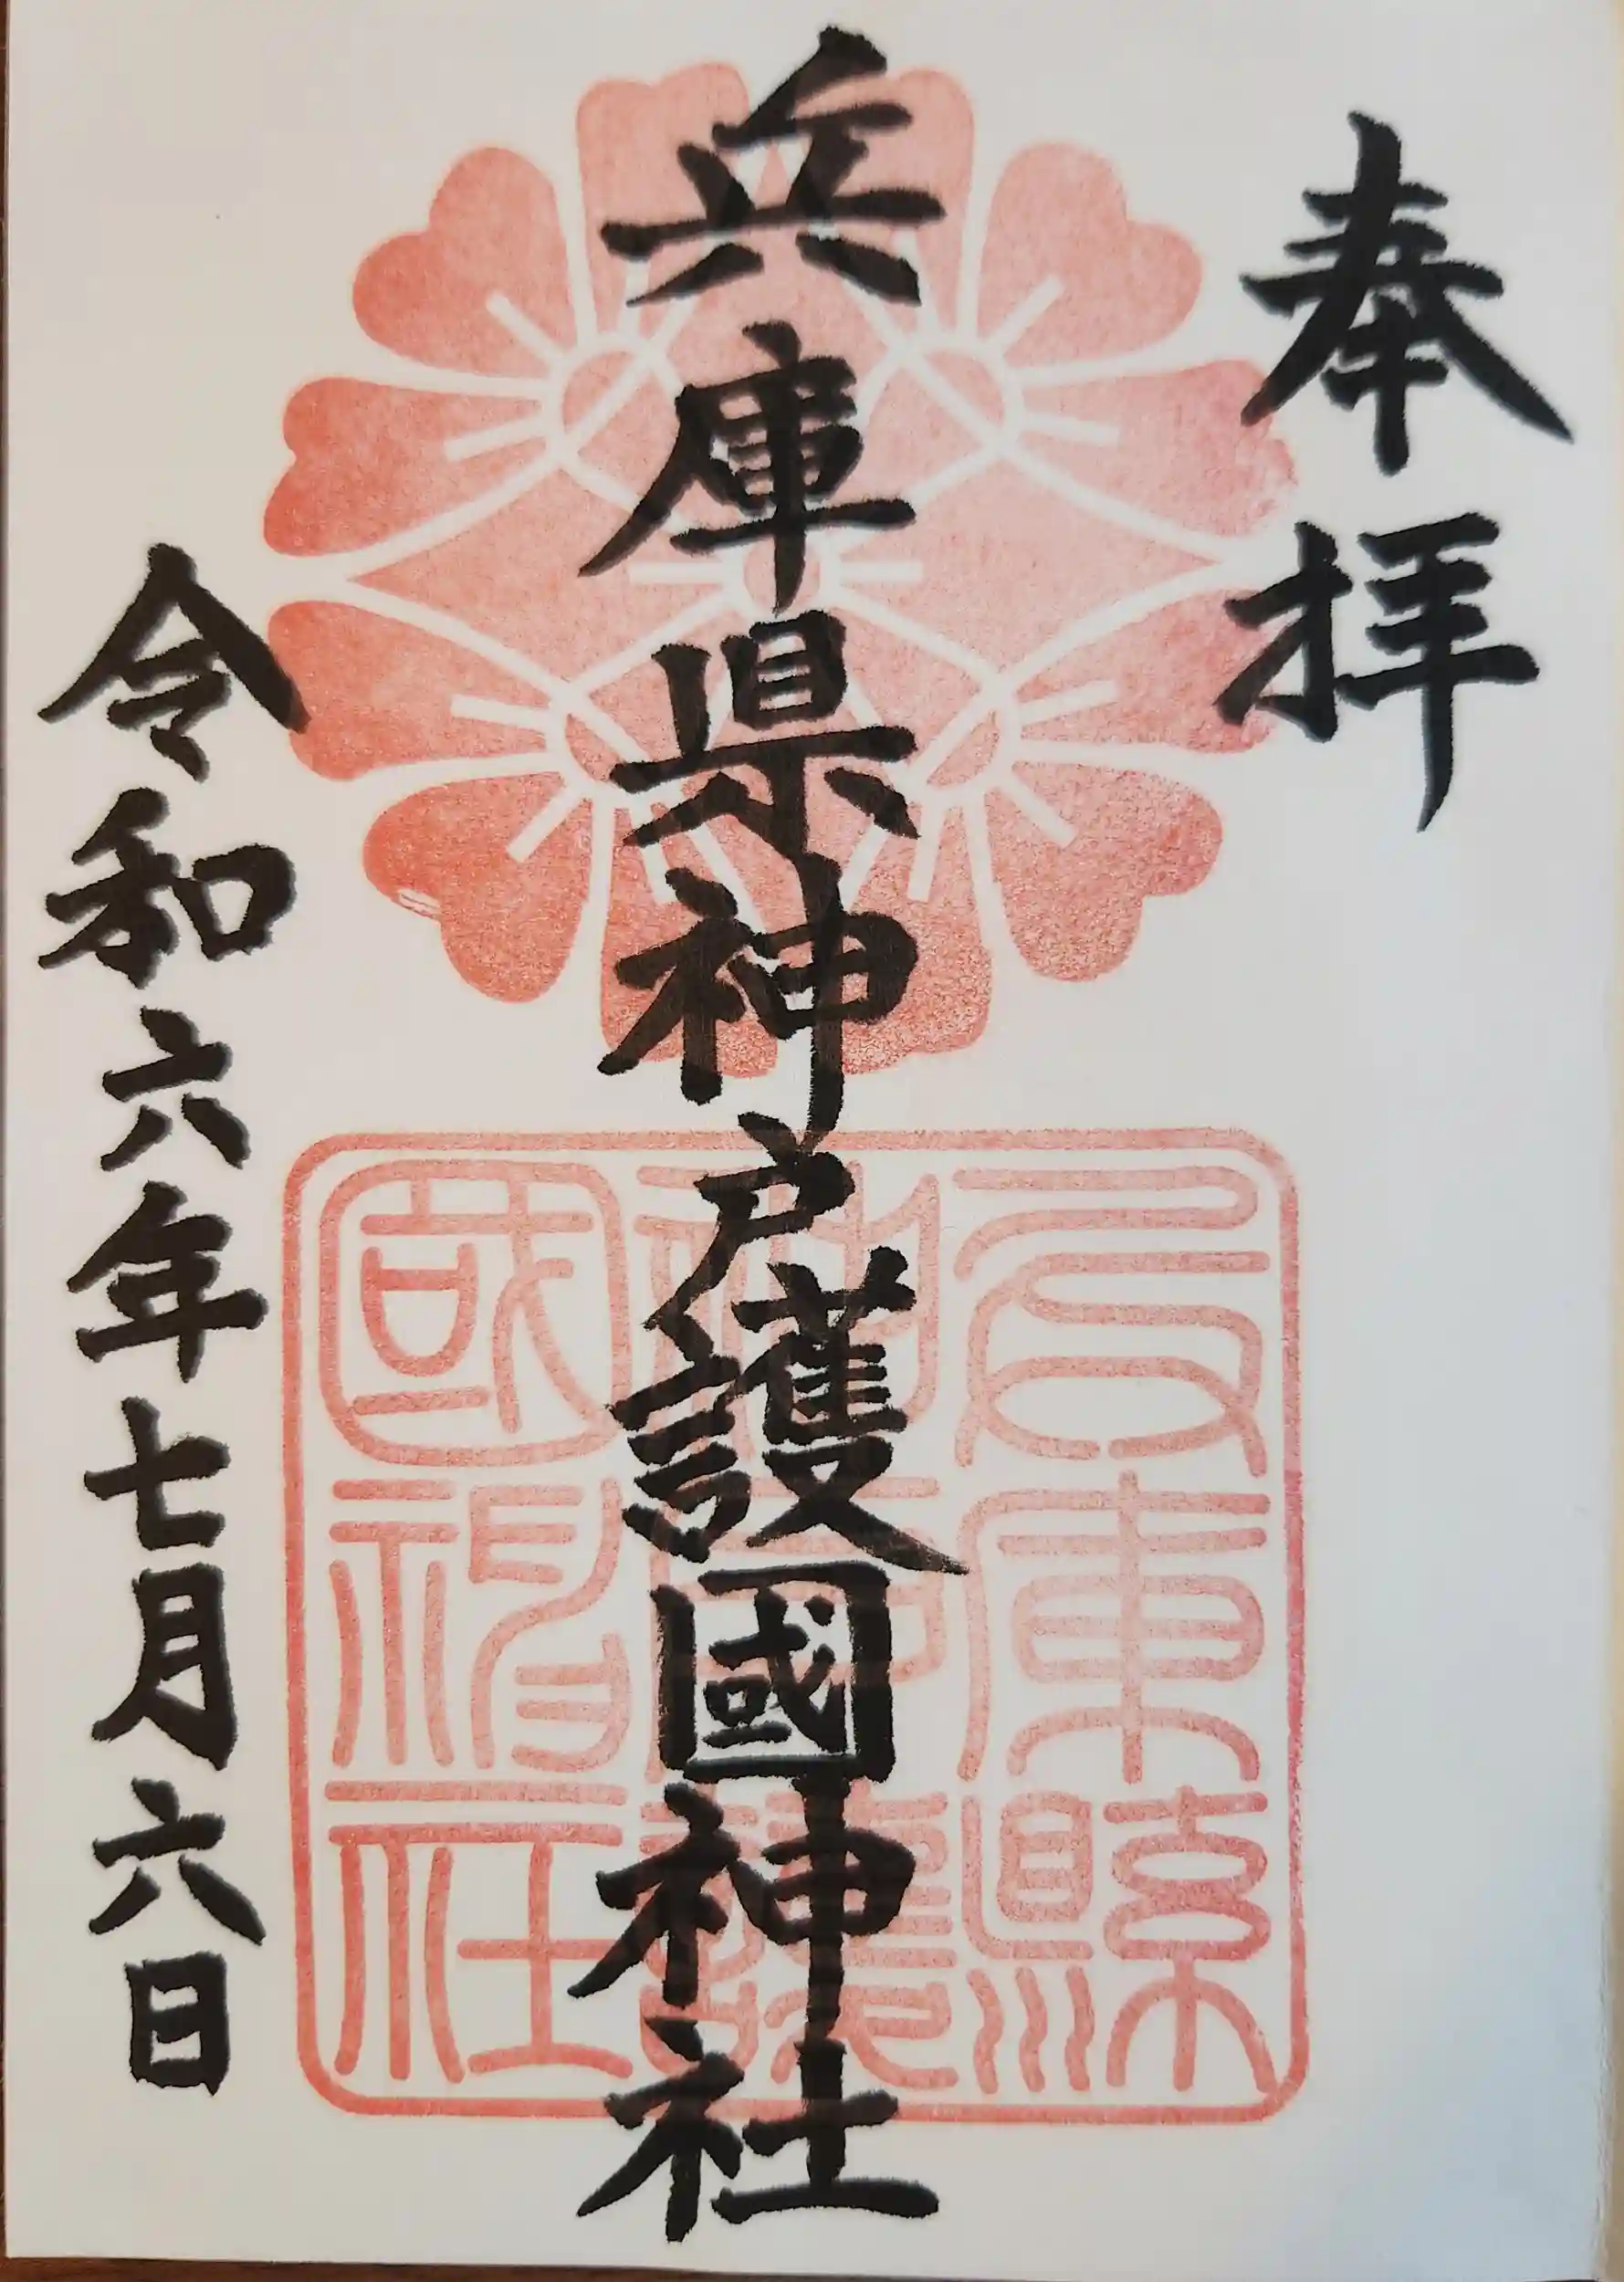 奉拝
兵庫県神戸護國神社
兵庫縣
神戸護
國神社
令和六年七月六日